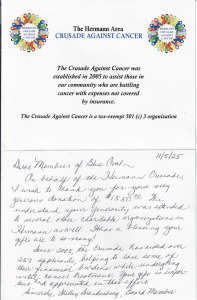 The Hermann Area
CRUSADE AGAINST CANCER
The Crusade Against Cancer was
established in 2005 to assist those in
our community who are battling
cancer with expenses not covered
by insurance.
The Crusade Against Cancer is a tax-exempt 501 (c) 3 organization
11/5/25
Dear Members of the
On behalf of the Hermann Crusade
I wish to thank you for your very
generous donation of
understand your generosity was extended
to several other charitable organizations in
Hermann as well. What a blessing your
gifts are to so many!
Since 2005 the Crusade has aided over
applicants, helping to ease some of
their financial burdens while undergoing
cancer treatment. Your gift is
and appreciated in that effort.
Sincerely, Board Member